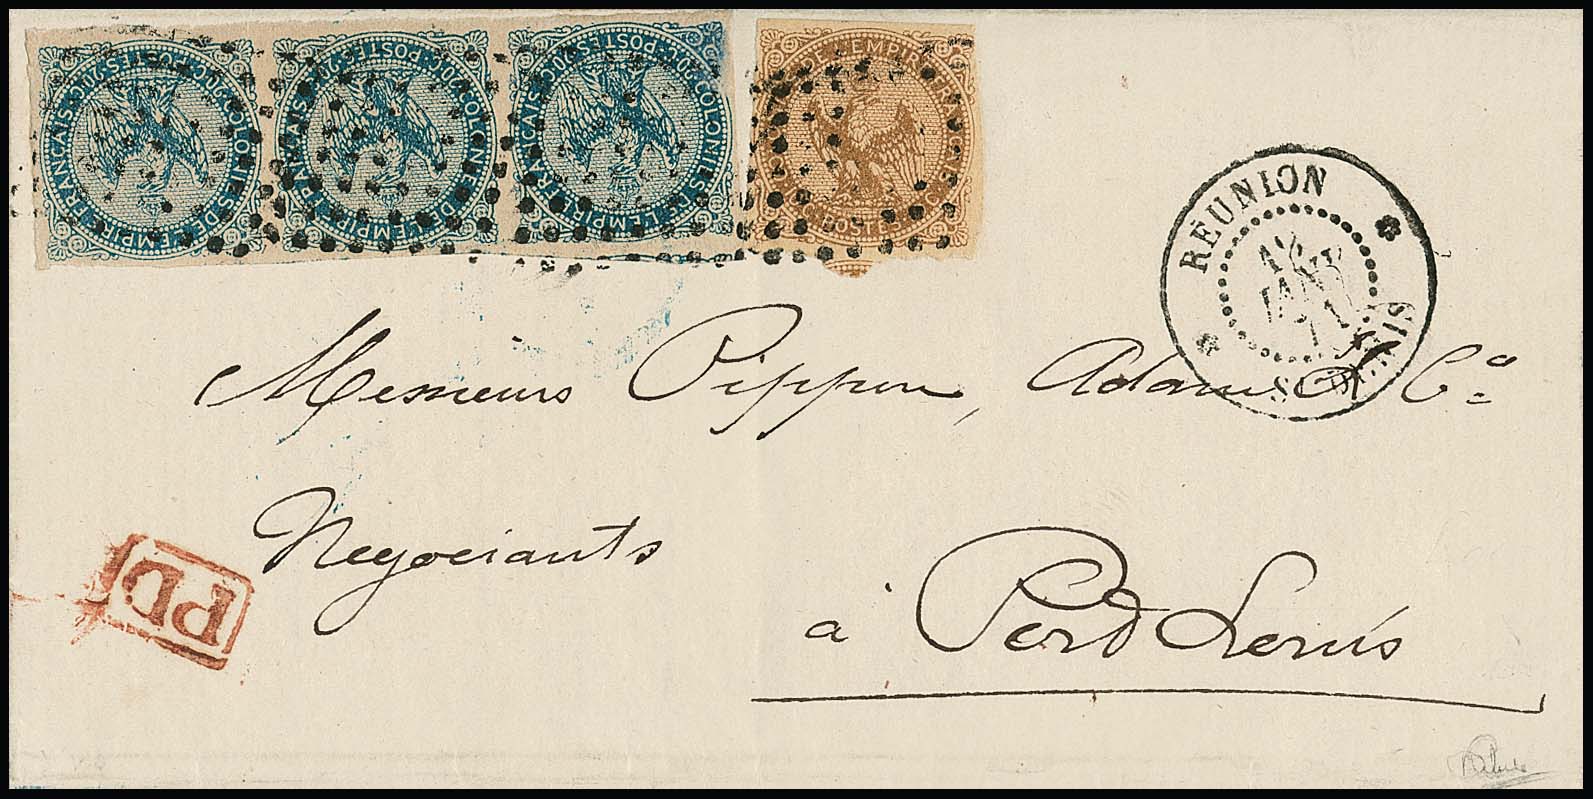 COLONIES DE L'EMPIRE FRANÇAIS · POSTES · 20C ·
COLONIES DE L'EMPIRE FRANÇAIS · POSTES · 20C ·
COLONIES DE L'EMPIRE FRANÇAIS · POSTES · 20C ·
DE L'EMPIRE FRANÇAIS POSTES
RÉUNION
12
JANV
71
ST DENIS
Messieurs Pippon, Adam & Cº
Négociants
à Port Louis
PD